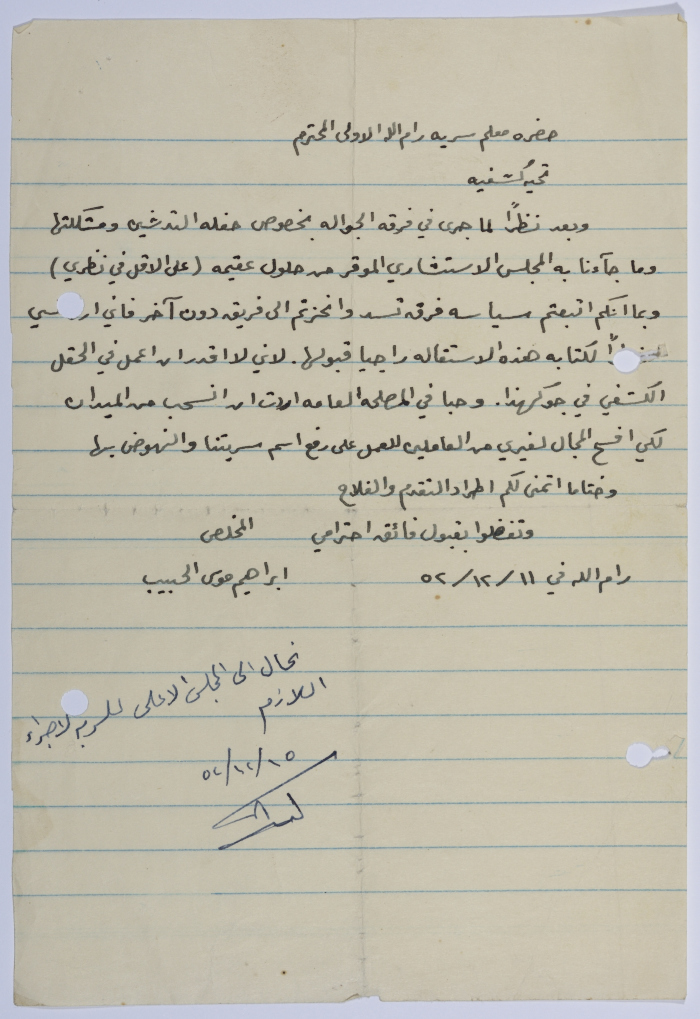 حضره معلم سريه رام الله الاولى المحترم
تحيه كشفيه
وبعد نظراً لما جرى في فرقه الجواله بخصوص حفله التدشين ومشكلتها
وما جآءنا به المجلس الاستشاري الموقر من حلول عقيمه (على الاقل في نظري)
وبما انكم اتبعتم سياسه فرق تسد وانحزتم الى فريق دون آخر فاني
لكتابه هذه الاستقاله راجيا قبولها. لاني لا اقدر ان اعمل في الحقل
الكشفي في جو كهذا. وحبا في المصلحه العامه اردت ان انسحب من الميدان
لكي افسح المجال لغيري من العاملين للعمل على رفع اسم سريتنا والنهوض بها
وختاما اتمنى لكم اطراد التقدم والفلاح
وتفضلوا بقبول فائق احترامي المخلص
رام الله في ١١/١٢/٥٢ ابراهيم موسى الحبيب
تحال الى المجلس الاعلى للسريه لاجراء
اللازم
٥٢/١٢/١٥